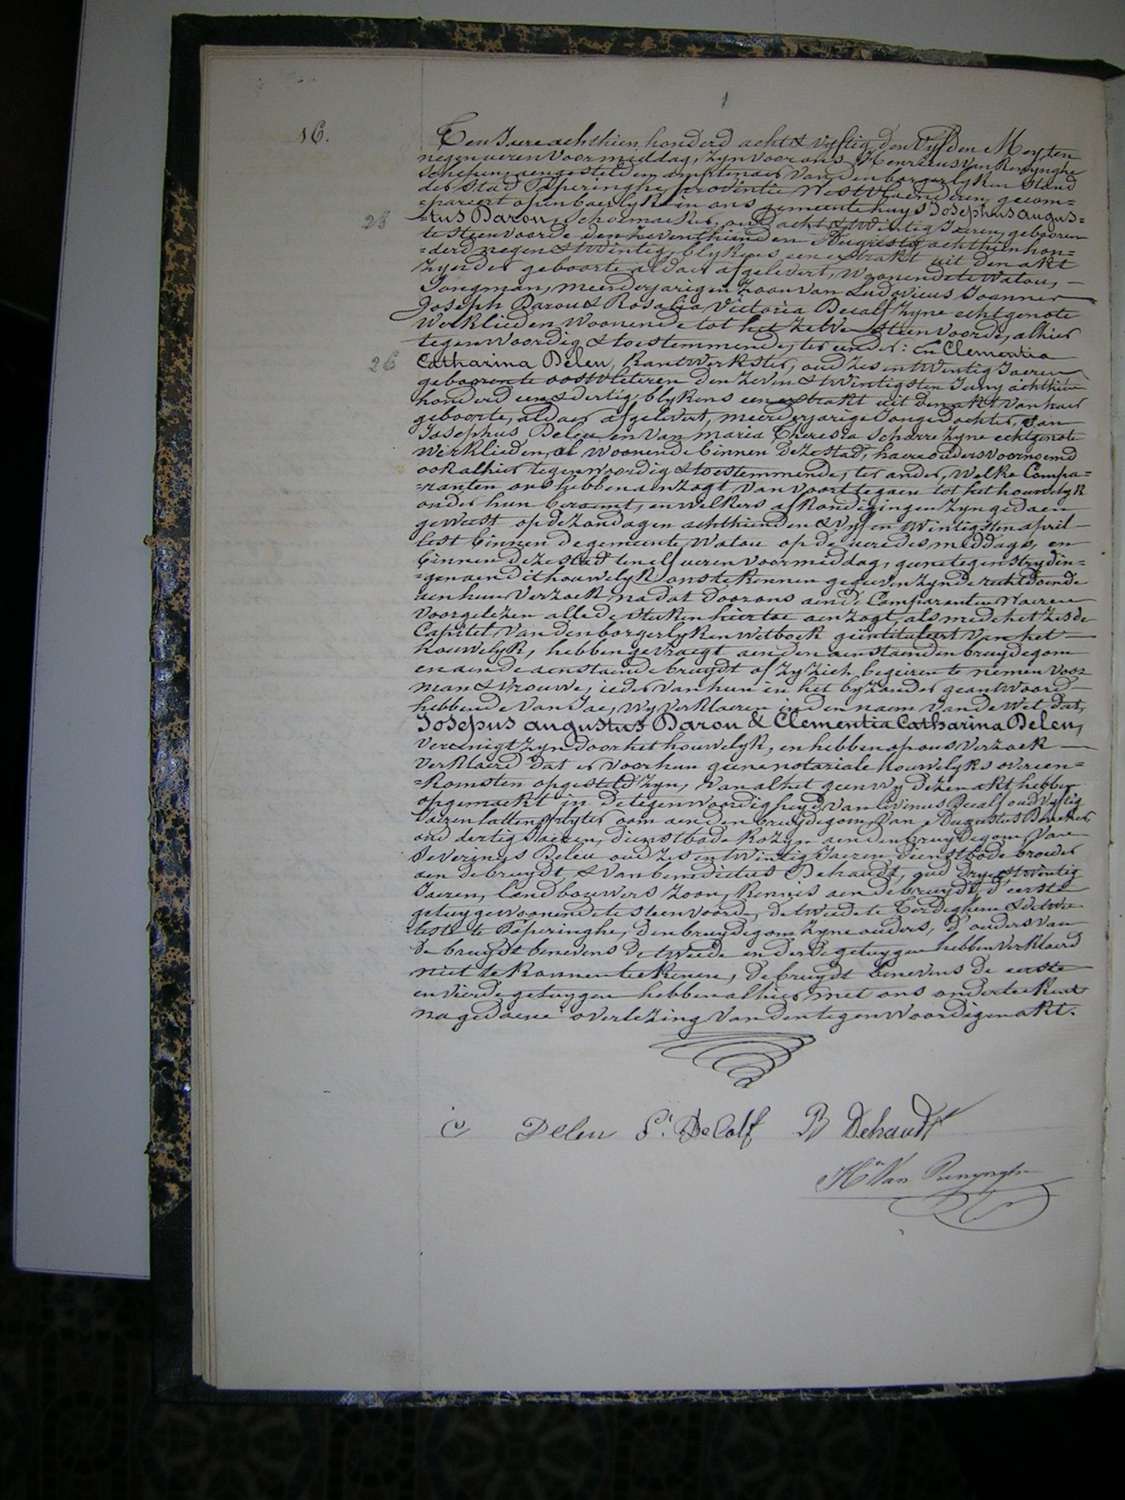 1
16.
Den Jaere achthien honderd acht & vyftig, den vyfden Mey ten
negen ueren voormiddag, zyn voor ons Henricus Van Renynghe
schepen aengestelden amptenaer van den borgerlyken stand
der stad Poperinghe, provintie Westvlaenderen, gecom-
=pareert openbaerlyk in ons gemeentehuys Josephus augus-
28 =tus Darou, schoemaeker, oud acht & twintig Jaeren, gebooren
te Steenvoorde den zeventhienden Augusty achthien hon-
=derd negen & twintig, blykens een extrakt uit den akt
zynder geboorte aldaer afgelevert, woonende te Watou, —
Jongman, meerderjarigen zoon van Ludovicus Joannes
Joseph Darou & Rosalia Victoria Decalf zyne echtgenote
Werklieden woonende tot het zelve Steenvoorde, alhier
tegenwoordig & toestemmende, ter eender: En Clementia
26 Catharina Deleu, kantwerkster, oud zes en twintig Jaeren
gebooren te oostvleteren den zeven & twintigsten Juny achthien
honderd een & dertig, blykens een extrakt uit den akt van haer
geboorte, aldaer afgelevert, meerderjarige Jonge dochter, van
Josephus Deleu en van Maria Theresia Scharre zyne echtgenote
Werklieden, al woonende binnen deze stad, haere ouders voornoemd
ook alhier tegenwoordig & toestemmende, ter ander, Welke Compa-
=ranten ons hebben aenzogt van voort te gaen tot het houwelyk
onder hun beraemt, en welkers afkondigingen zyn gedaen
geweest op de zondagen achthienden & vyf en twintigsten april
lest binnen de gemeente Watou op de ure des middags, en
binnen deze stad ten elf ueren voormiddag, geene tegenstrydin-
=gen aen dit houwelyk ons te kennen gegeven zynde rechtdoende
aen hun verzoek, na dat door ons aen de Comparanten waeren
voorgelezen alle de stuken hier toe aenzogt, als mede het zesde
Capitel van den borgerlyken wetboek geintituleert van het —
houwelyk, hebben gevraegt aen den aenstaenden bruydegom
en aen de aenstaende bruydt of zy zich begeiren te nemen voor
man & vrouwe, ieder van hun in het byzonder geantwoord
hebbende van Jae, wy verklaeren in den naem van de Wet dat,
Josephus augustus Darou & Clementia Catharina Deleu,
vereenigt zyn door het houwelyk, en hebben op ons verzoek —
verklaerd dat er voor hun geene notariale houwelyks overeen-
=komsten opgesteld zyn, van al het geen wy dezen akt hebben
opgemaekt in de tegenwoordigheyd van Livinus Decalf oud vyftig
Jaeren lattensplyter oom aen den bruydegom, van Augustus
oud dertig Jaeren, dienstbode kozyn aen den bruydegom, van
Severinus Deleu oud zes en twintig Jaeren dienstbode broeder
aen de bruydt, & van Benedictus Dehaudt, oud dry & twintig
Jaeren, Landbouwers zoon, kennis aen de bruydt, d'eerste
getuyge woonende te Steenvoorde, de tweede te Eerdeghem & de twee
leste te Poperinghe, den bruydegom, zyne ouders, d'ouders van
de bruydt benevens de tweede en derde getuygen hebben verklaerd
niet te konnen teekenen, de bruydt benevens de eerste
en vierde getuygen hebben alhier met ons onderteekent
na gedaene overlezing van den tegenwoordigen akt.
C Deleu L. DeCalf B Dehaudt
Hs Van Renynghe